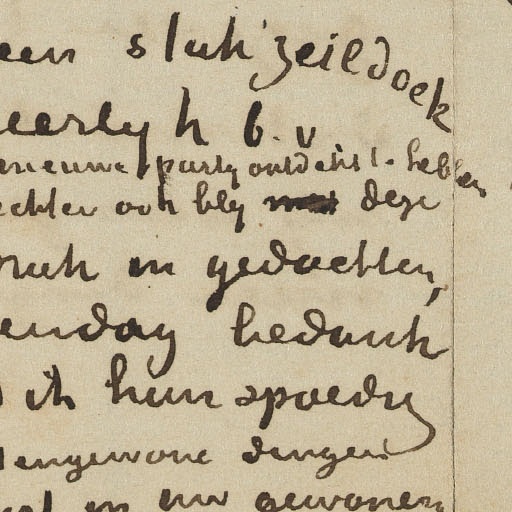 een stuk zeildoek
eerlyk b.v.
nieuwe party ontdekt te hebben
echter ook bly deze
ruk in gedachten,
endag bedank
ik hun spoedig
engewone dingen
in uw gewonen